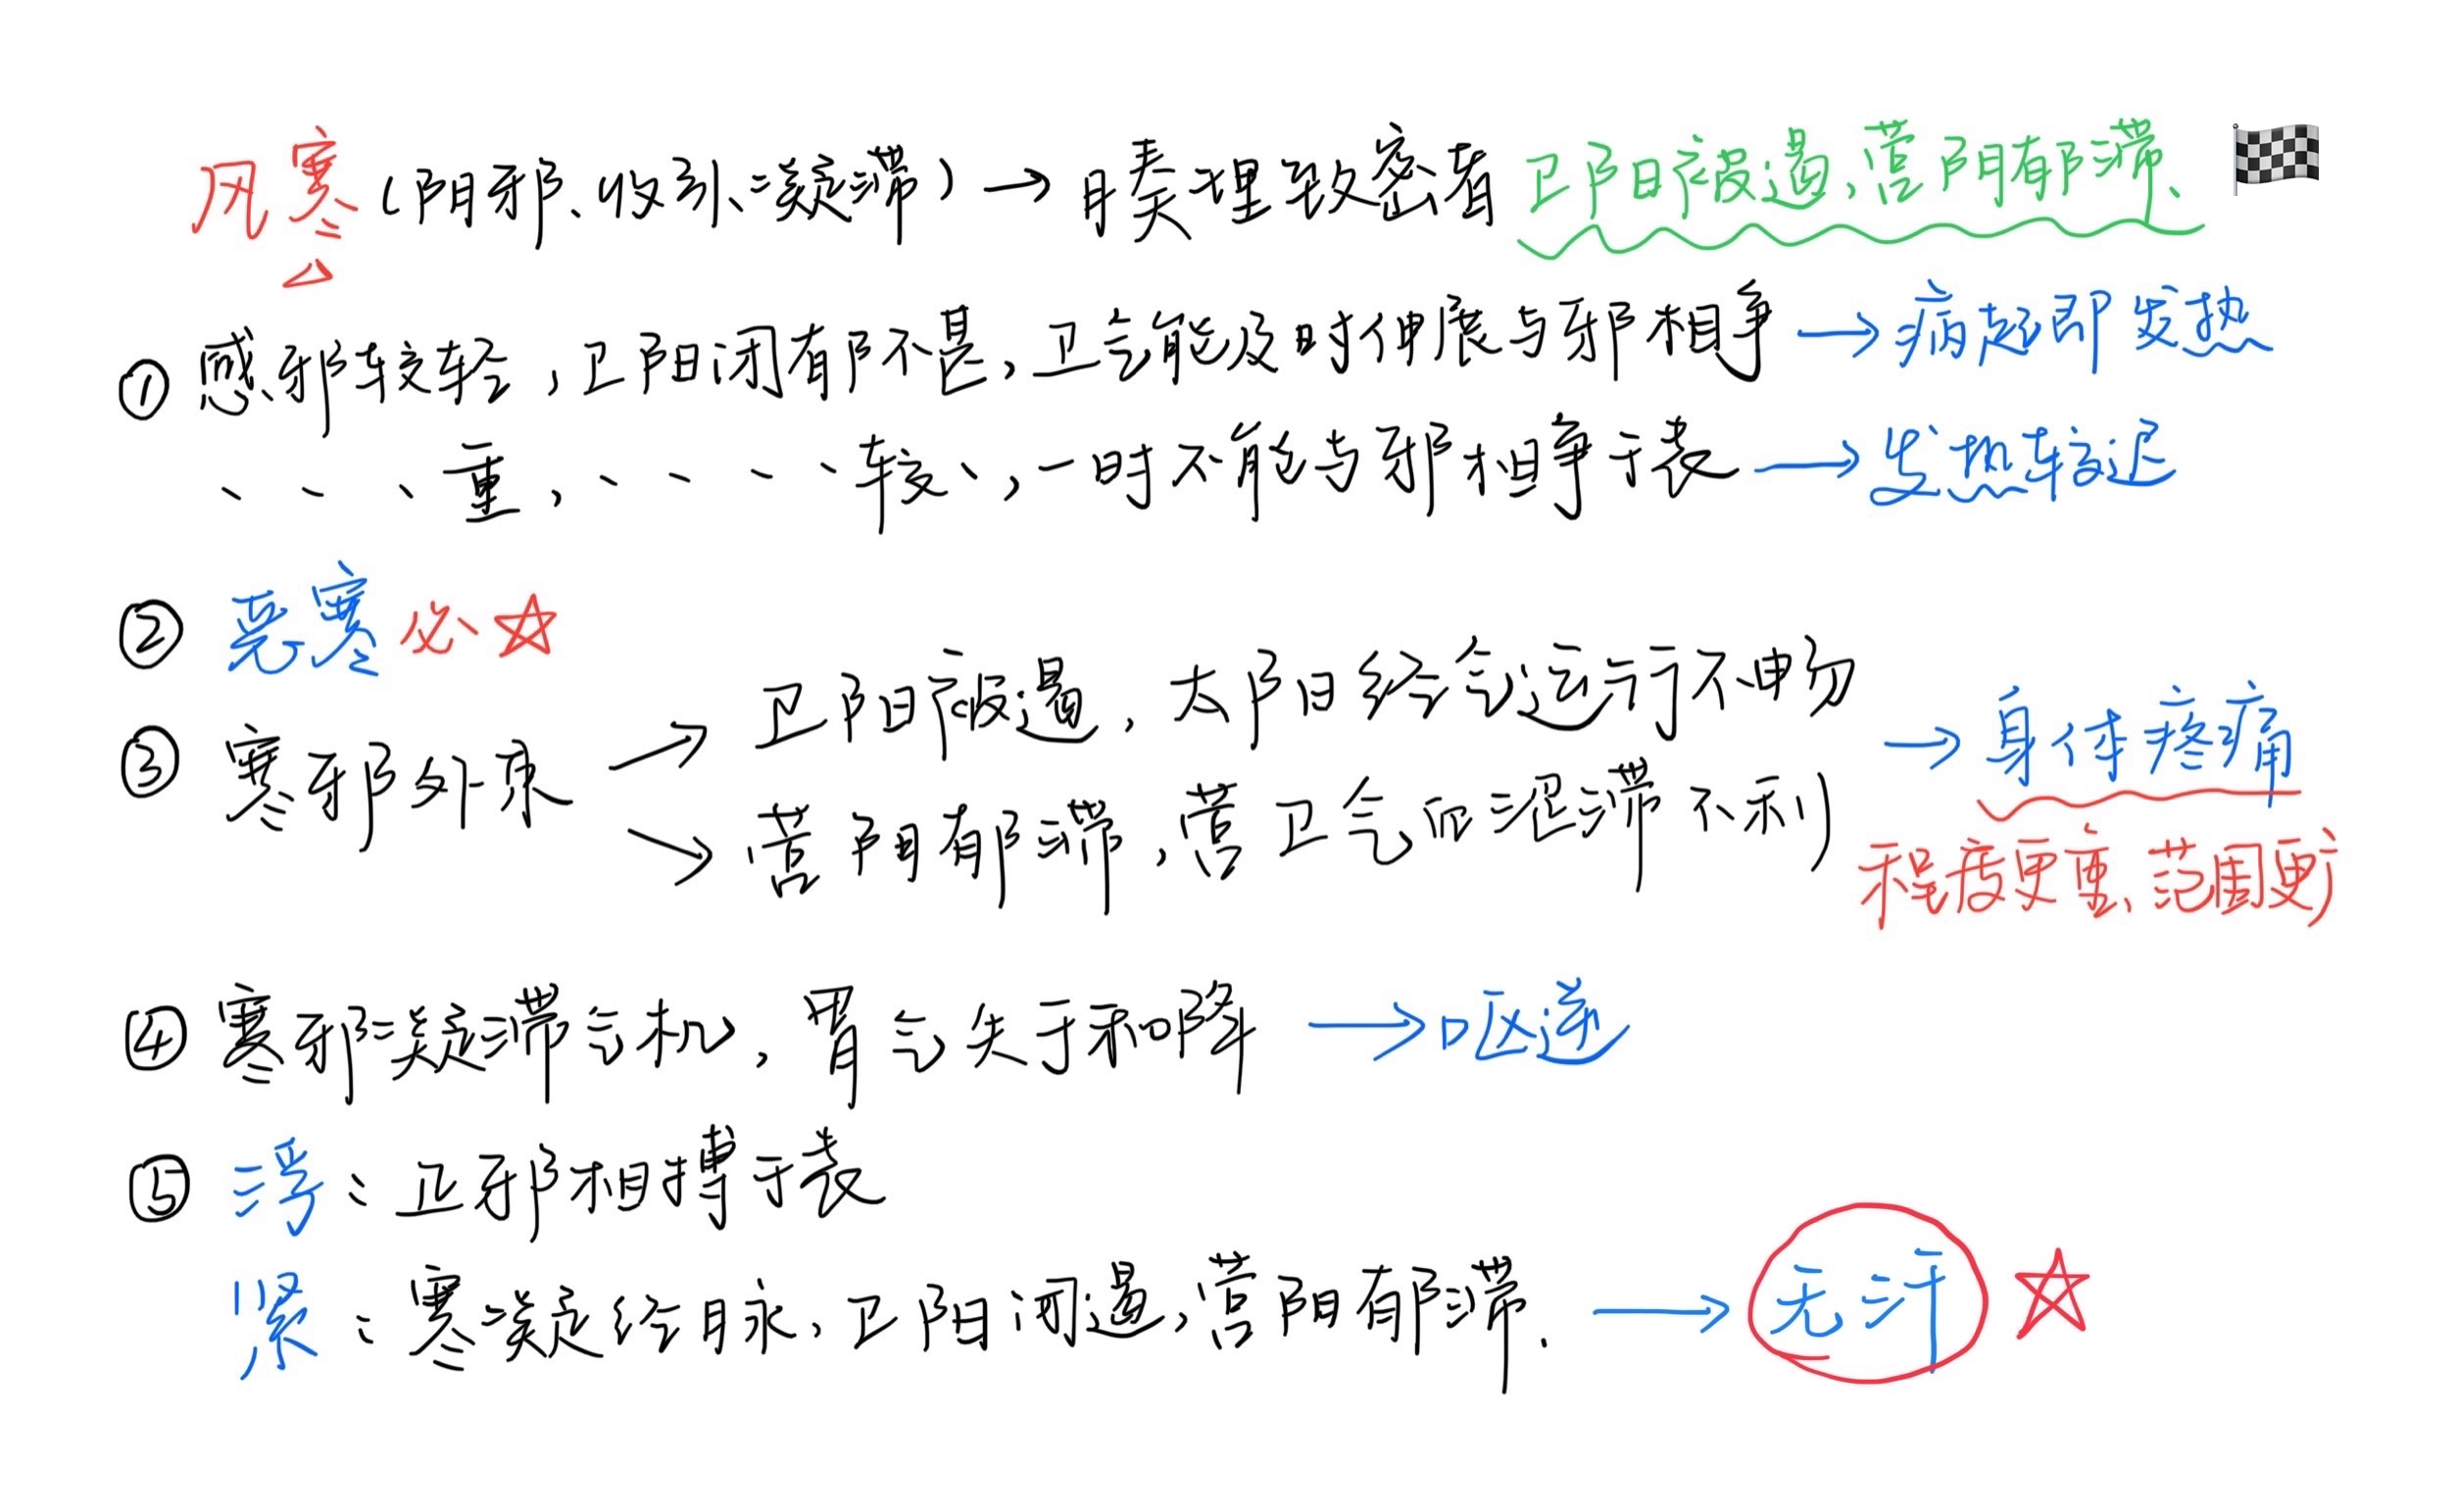 风寒(阴邪、收引、凝滞)→腠理致密者 卫阳被遏,营阴郁滞、
①感邪较轻,卫阳闭郁不甚,卫气能及时伸展与邪相争→病起即发热
、、、重,、、、、较、,一时不能与邪相争于表→发热较迟
②恶寒必、☆
③寒邪外束→卫阳被遏,太阳经气运行不畅
→营阴郁滞,营卫气血涩滞不利
→身体疼痛
程度更重、范围更广
④寒邪凝滞气机,胃气失于和降→呕逆
⑤浮:正邪相搏于表
紧:寒凝经脉,卫阳闭遏,营阴郁滞.→无汗☆